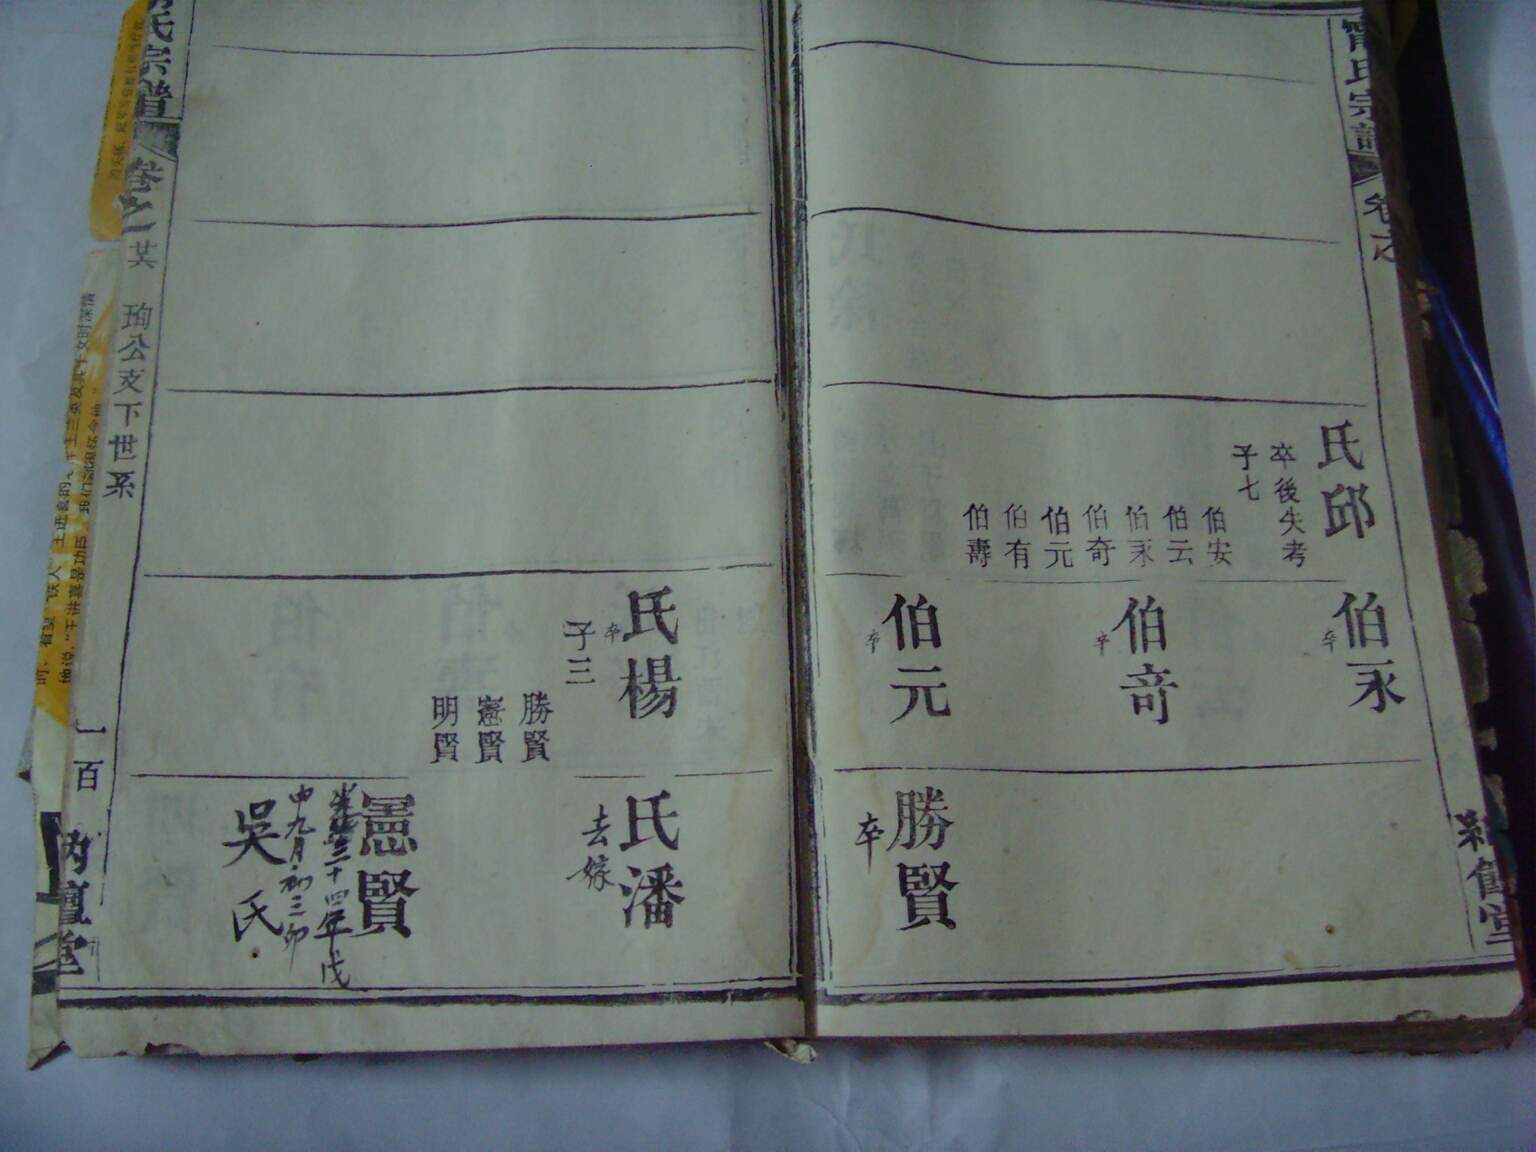 甯氏宗譜
卷之
氏邱
卒後失考
子七
伯安
伯云
伯永
伯奇
伯元
伯有
伯壽
伯永
卒
伯奇
卒
伯元
卒
勝賢
卒
氏楊
卒
子三
勝賢
憲賢
明賢
氏潘
去嫁
憲賢
三十四年戊
申九月初三卯
吳氏
氏宗譜
卷之
珣公支下世系
一百